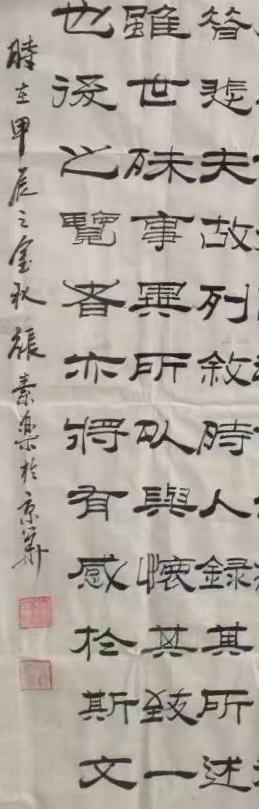 昔悲夫故列敘時人録其所述
雖世殊事異所以興懷其致一
也後之覽者亦將有感於斯文
時在甲辰之金秋張素樂於京華